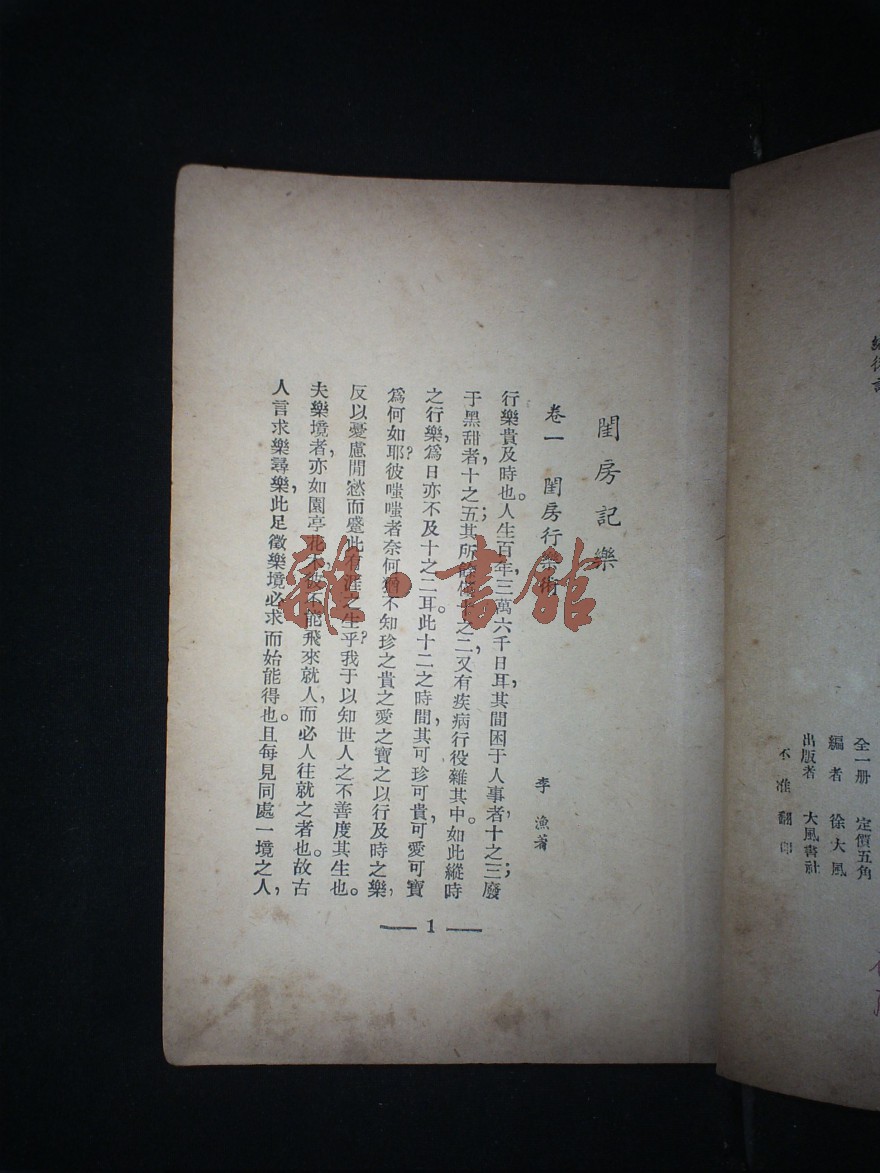 閨房記樂
卷一　閨房行樂術
李漁著
行樂貴及時也。人生百年三萬六千日耳，其間困于人事者，十之三；廢
于黑甜者，十之五；其所餘僅十之二，又有疾病行役雜其中。如此縱時
之行樂，爲日亦不及十之二耳。此十二之時間，其可珍可貴，可愛可寶
爲何如耶？彼嗤嗤者奈何猶不知珍之貴之愛之寶之以行及時之樂，
反以憂慮閒愁而蹙此有涯之生乎？我于以知世人之不善度其生也。
夫樂境者，亦如園亭花木，彼不能飛來就人，而必人往就之者也。故古
人言求樂尋樂，此足徵樂境必求而始能得也。且每見同處一境之人，
1
全一册　定價五角
編者　徐大風
出版者　大風書社
不准翻印
雜·書館